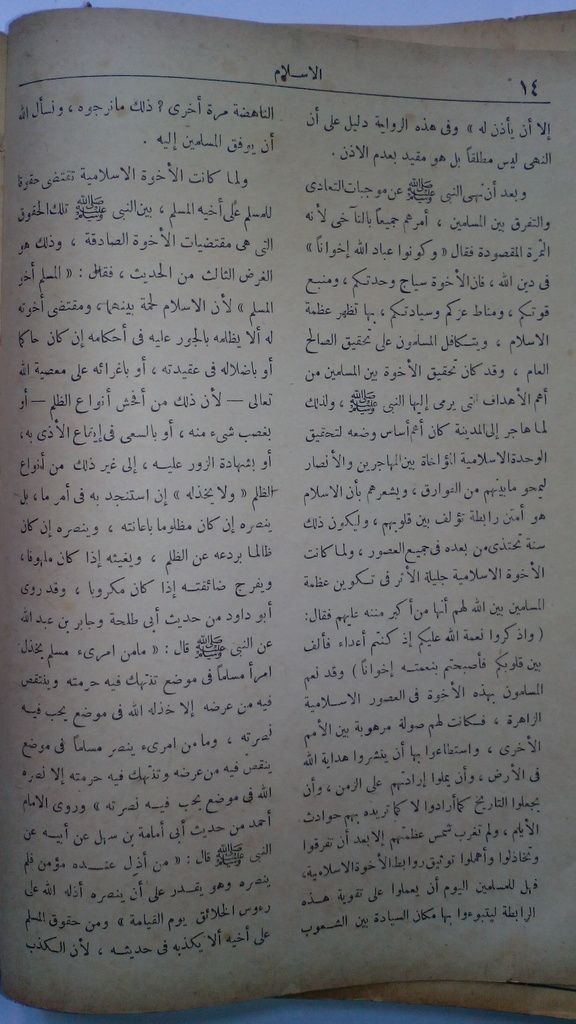 ١٤
الاسلام
إلا أن يأذن له » وفى هذه الرواية دليل على أن
النهى ليس مطلقاً بل هو مقيد بعدم الاذن .
وبعد أن نهى النبى ﷺ عن موجبات التعادى
والتفرق بين المسلمين ، أمرهم جميعاً بالتآخى لأنه
الثمرة المقصودة فقال « وكونوا عباد الله إخواناً »
فى دين الله ، فان الأخوة سياج وحدتكم ، ومنبع
قوتكم ، ومناط عزكم وسيادتكم ، بها تظهر عظمة
الاسلام ، ويتكافل المسلمون على تحقيق الصالح
العام ، وقد كان تحقيق الأخوة بين المسلمين من
أهم الأهداف التى يرمى إليها النبى ﷺ ، ولذلك
لما هاجر إلى المدينة كان أهم أساس وضعه لتحقيق
الوحدة الاسلامية المؤاخاة بين المهاجرين والأنصار
ليمحو ما بينهم من الفوارق ، ويشعرهم بأن الاسلام
هو أمتن رابطة تؤلف بين قلوبهم ، وليكون ذلك
سنة تحتذى من بعده فى جميع العصور ، ولما كانت
الأخوة الاسلامية جليلة الأثر فى تكوين عظمة
المسلمين بين الله لهم أنها من أكبر مننه عليهم فقال:
( واذكروا نعمة الله عليكم إذ كنتم أعداء فألف
بين قلوبكم فأصبحتم بنعمته إخواناً ) وقد نعم
المسلمون بهذه الأخوة فى العصور الاسلامية
الزاهرة ، فكانت لهم صولة مرهوبة بين الأمم
الأخرى ، واستطاعوا بها أن ينشروا هداية الله
فى الأرض ، وأن يملوا إرادتهم على الزمن ، وأن
يجعلوا التاريخ كما أرادوا لا كما تريده بهم حوادث
الأيام ، ولم تغرب شمس عظمتهم إلا بعد أن تفرقوا
وتخاذلوا وأهملوا توثيق روابط الأخوة الاسلامية،
فهل للمسلمين اليوم أن يعملوا على تقوية هذه
الرابطة ليتبوءوا بها مكان السيادة بين الشعوب
الناهضة مرة أخرى ? ذلك ما نرجوه ، ونسأل الله
أن يوفق المسلمين إليه .
ولما كانت الأخوة الاسلامية تقتضى حقوقا
للمسلم على أخيه المسلم ، بين النبى ﷺ تلك الحقوق
التى هى مقتضيات الأخوة الصادقة ، وذلك هو
الغرض الثالث من الحديث ، فقال : « المسلم أخو
المسلم » لأن الاسلام لحمة بينهما ، ومقتضى أخوته
له ألا يظلمه بالجور عليه فى أحكامه إن كان حاكما
أو باضلاله فى عقيدته ، أو باغرائه على معصية الله
تعالى — لأن ذلك من أفحش أنواع الظلم — أو
بغصب شىء منه ، أو بالسعى فى إيقاع الأذى به،
أو بشهادة الزور عليه ، إلى غير ذلك من أنواع
الظلم « ولا يخذله » إن استنجد به فى أمر ما ، بل
ينصره إن كان مظلوما باعانته ، وينصره إن كان
ظالما بردعه عن الظلم ، ويغيثه إذا كان ملهوفا،
ويفرج ضائقته إذا كان مكروبا ، وقد روى
أبو داود من حديث أبى طلحة وجابر بن عبد الله
عن النبى ﷺ قال : « ما من امرىء مسلم يخذل
امرأ مسلماً فى موضع تنتهك فيه حرمته وينتقص
فيه من عرضه إلا خذله الله فى موضع يحب فيه
نصرته ، وما من امرىء ينصر مسلماً فى موضع
ينقص فيه من عرضه وتنتهك فيه حرمته إلا نصره
الله فى موضع يحب فيه نصرته » وروى الامام
أحمد من حديث أبى أمامة بن سهل عن أبيه عن
النبى ﷺ قال : « من أذل عنده مؤمن فلم
ينصره وهو يقدر على أن ينصره أذله الله على
رءوس الخلائق يوم القيامة » ومن حقوق المسلم
على أخيه ألا يكذبه فى حديثه ، لأن الكذب